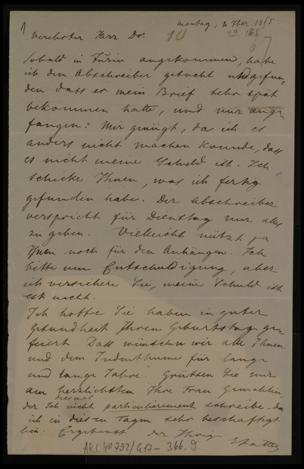 Montag,
Verehrter Herr Dr.
Sobald in Turin angekommen, habe
ich den Abschreiber gesucht
den dass er mein Brief sehr spät
bekommen hatte, und nur
fangen. Mir genügt, das ich es
anders nicht machen konnte, dass
es nicht meine Schuld ist. Ich
schicke Ihnen, was ich fertig
gefunden habe. Der Abschreiber
verspricht für Dienstag mir alles
zu geben. Vielleicht nützt
Ihnen noch für den Anhängen. Ich
bitte um Entschuldigung, aber
ich versichere Sie, meine Schuld ist
es nicht.
Ich hoffe Sie haben in guter
Gesundheit Ihren Geburtstag ge-
feiert. Dass wünschen wir alle Ihnen
und dem Judenthume für lange
und lange Jahre. Grüssen Sie mir
am herzlichsten Ihre Frau Gemahlin
der ich nicht particulièrement schreibe, da
ich in diesen Tagen sehr beschäftigt
bin. Ergebenst der Ihrig